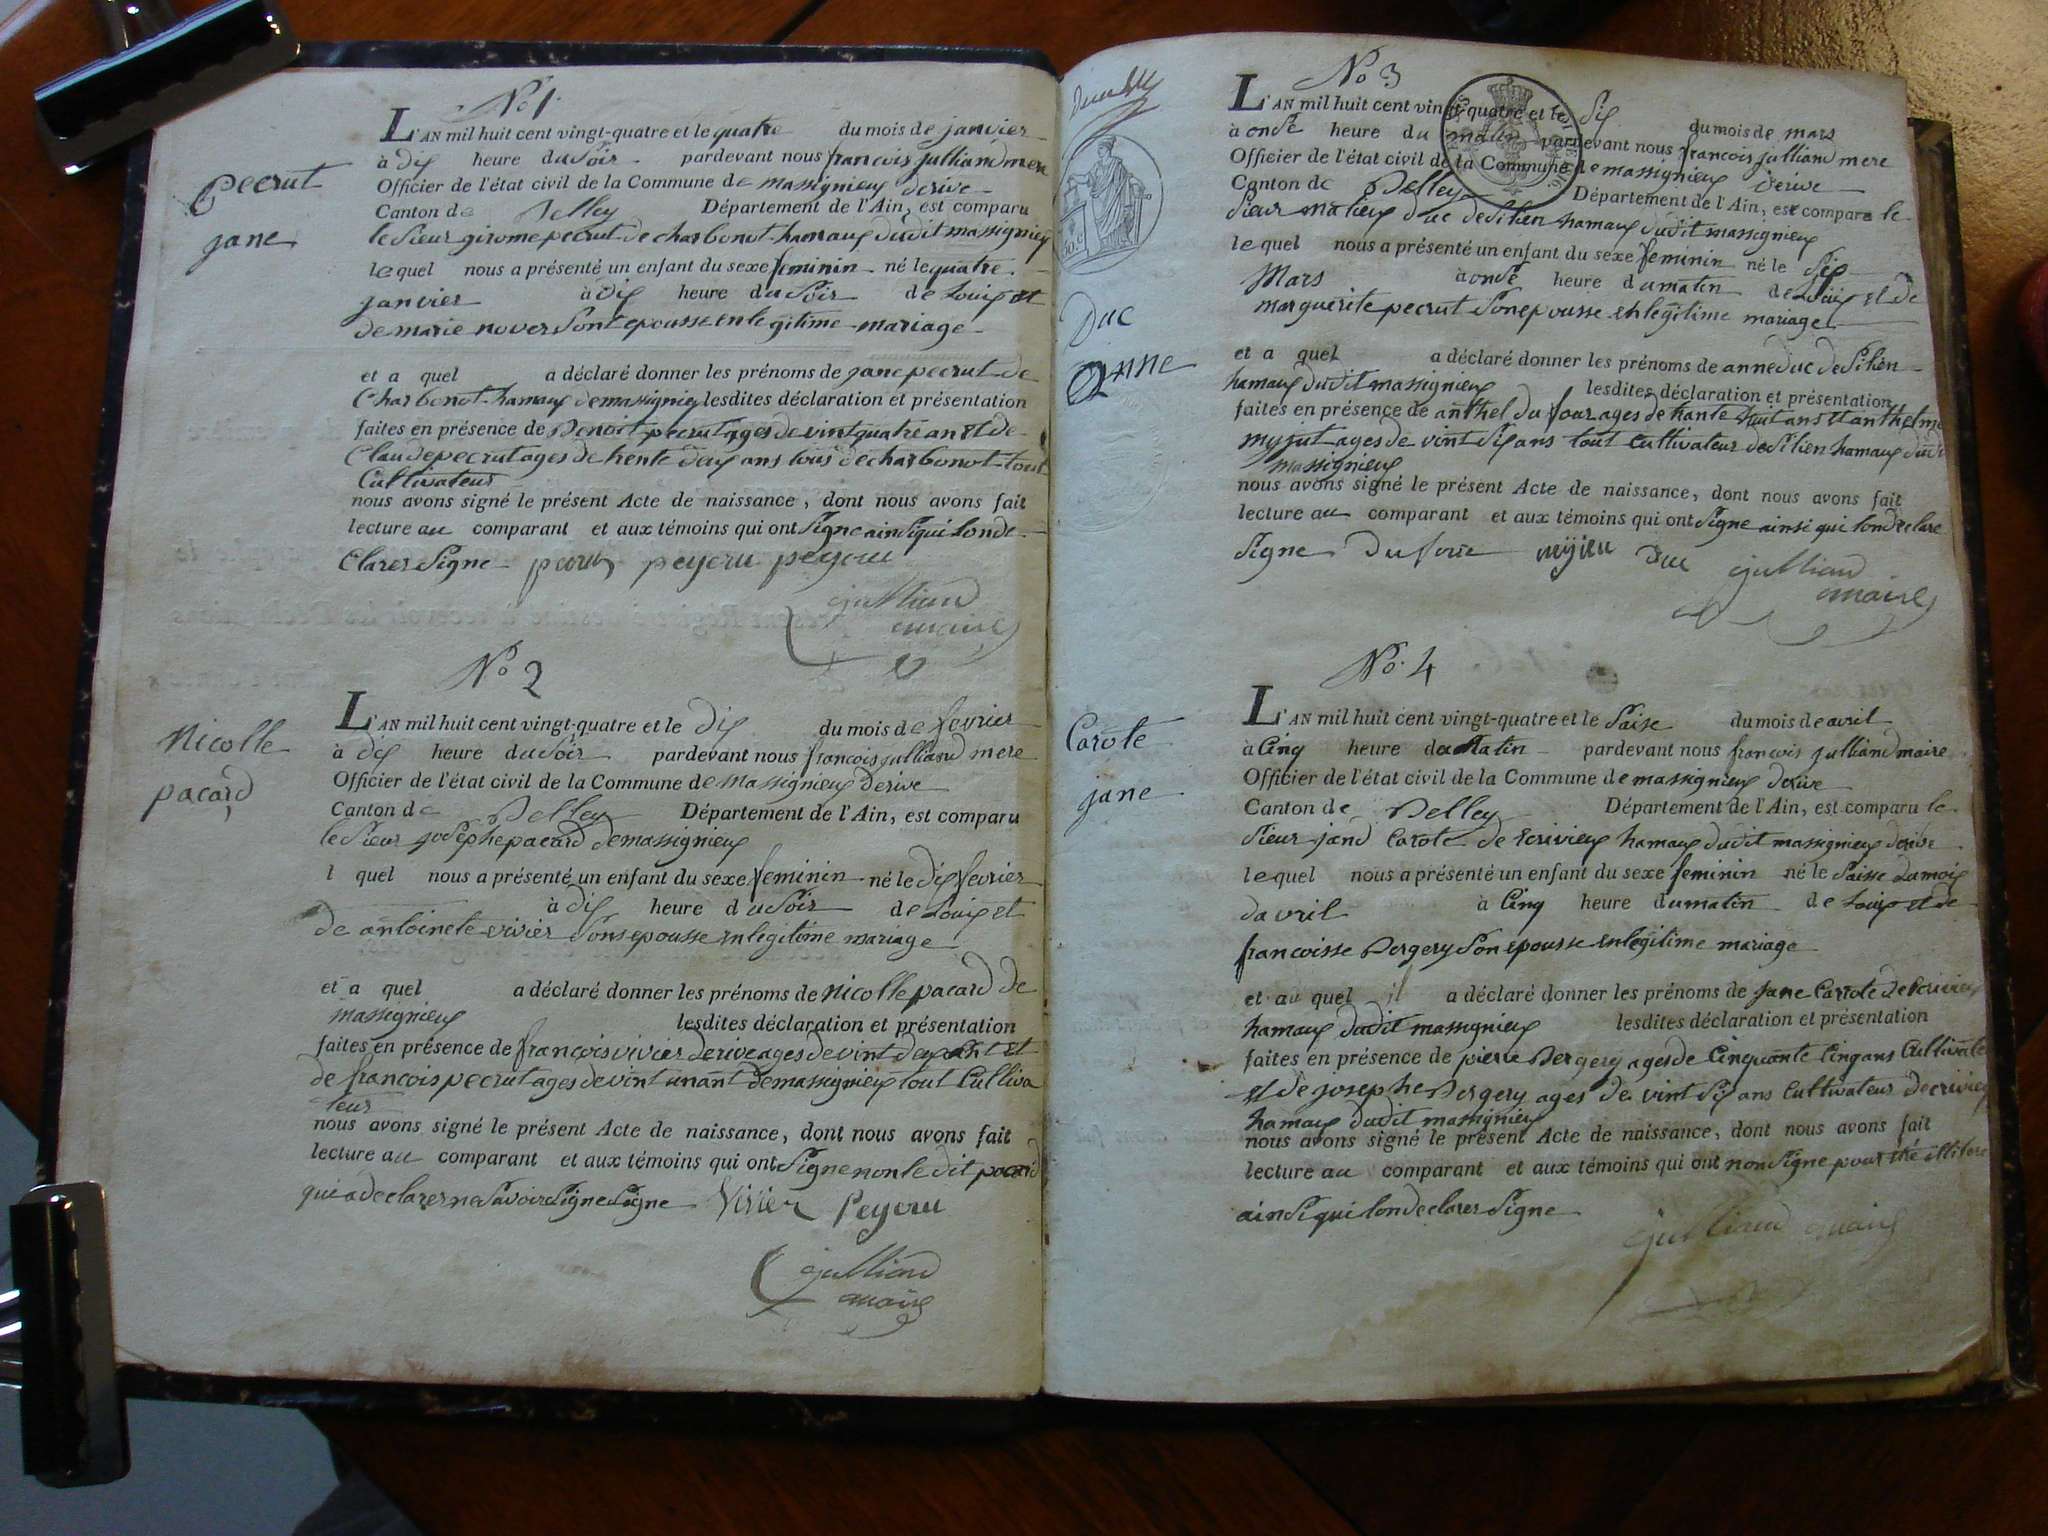 No 1.
L'AN mil huit cent vingt-quatre et le quatre du mois de janvier
à dix heure du soir pardevant nous françois julliand mere
Officier de l'état civil de la Commune de massignieux derive
Canton de Belley Département de l'Ain, est comparu
le sieur girome pecrut de charbonot hamaux dudit massignieux
lequel nous a présenté un enfant du sexe feminin né le quatre
janvier à dix heure du soir de Louis et
de marie nover sont epousse en legitime mariage
pecrut
jane
et a quel a déclaré donner les prénoms de jane pecrut de
Charbonot hamaux de massignieu lesdites déclaration et présentation
faites en présence de Benoit pecrut ages de vint quatre an et de
Claude pecrut ages de trente deux ans tous de charbonot tout
Cultivateur
nous avons signé le présent Acte de naissance, dont nous avons fait
lecture au comparant et aux témoins qui ont signe ainsi qui londe
Clarer signe peyeru peyeru
julliand
maire
No 2
L'AN mil huit cent vingt-quatre et le dix du mois de fevrier
à dix heure du soir pardevant nous françois julliand mere
Officier de l'état civil de la Commune de massignieux derive
Canton de Belley Département de l'Ain, est comparu
le sieur josephe pacard de massignieux
l quel nous a présenté un enfant du sexe feminin né le dix fevrier
à dix heure du soir de Louis et
de antoinete vivier sons epousse en legitime mariage
Nicolle
pacard
et a quel a déclaré donner les prénoms de nicolle pacard de
massignieux lesdites déclaration et présentation
faites en présence de françois vivier derive ages de vint deux ant et
de françois pecrut ages de vint unant de massignieux tout Cultiva
teur
nous avons signé le présent Acte de naissance, dont nous avons fait
lecture au comparant et aux témoins qui ont signe non le dit pacard
qui a declarer ne savoir signe signe Vivier Peyeru
julliand
maire
No 3
L'AN mil huit cent vingt-quatre et le six du mois de mars
à onse heure du matin pardevant nous françois julliand mere
Officier de l'état civil de la Commune de massignieux derive
Canton de Belley Département de l'Ain, est comparu le
sieur matieux duc de silien hamaux dudit massignieux
lequel nous a présenté un enfant du sexe feminin né le six
Mars à onse heure du matin de Louis et de
marguerite pecrut son epousse en legitime mariage
Duc
Anne
et a quel a déclaré donner les prénoms de anne duc de silien
hamaux dudit massignieux lesdites déclaration et présentation
faites en présence de anthel du four ages de trante huit ans et anthelme
myjut ages de vint six ans tout cultivateur de silien hamaux dudit
massignieux
nous avons signé le présent Acte de naissance, dont nous avons fait
lecture au comparant et aux témoins qui ont signe ainsi qui londeclare
signe Dufour myjeu duc julliand
maire
No. 4
L'AN mil huit cent vingt-quatre et le saise du mois de avril
à Cinq heure du matin pardevant nous françois julliand maire
Officier de l'état civil de la Commune de massignieux derive
Canton de Belley Département de l'Ain, est comparu le
sieur jand Carote de Ecrivieux hamaux dudit massignieux derive
lequel nous a présenté un enfant du sexe feminin né le saisse du mois
davril à Cinq heure du matin de Louis et de
françoisse Bergery son epousse en legitime mariage
Carote
jane
et au quel il a déclaré donner les prénoms de jane Carrote de Ecrivieux
hamaux dudit massignieux lesdites déclaration et présentation
faites en présence de pierre Bergery ages de Cinquante Cinq ans Cultivate
et de josephe Bergery ages de vint six ans cultivateur decrivieux
hamaux dudit massignieux
nous avons signé le présent Acte de naissance, dont nous avons fait
lecture au comparant et aux témoins qui ont non signe pour etre illitere
ainsi qui londeclarer signe
julliand maire